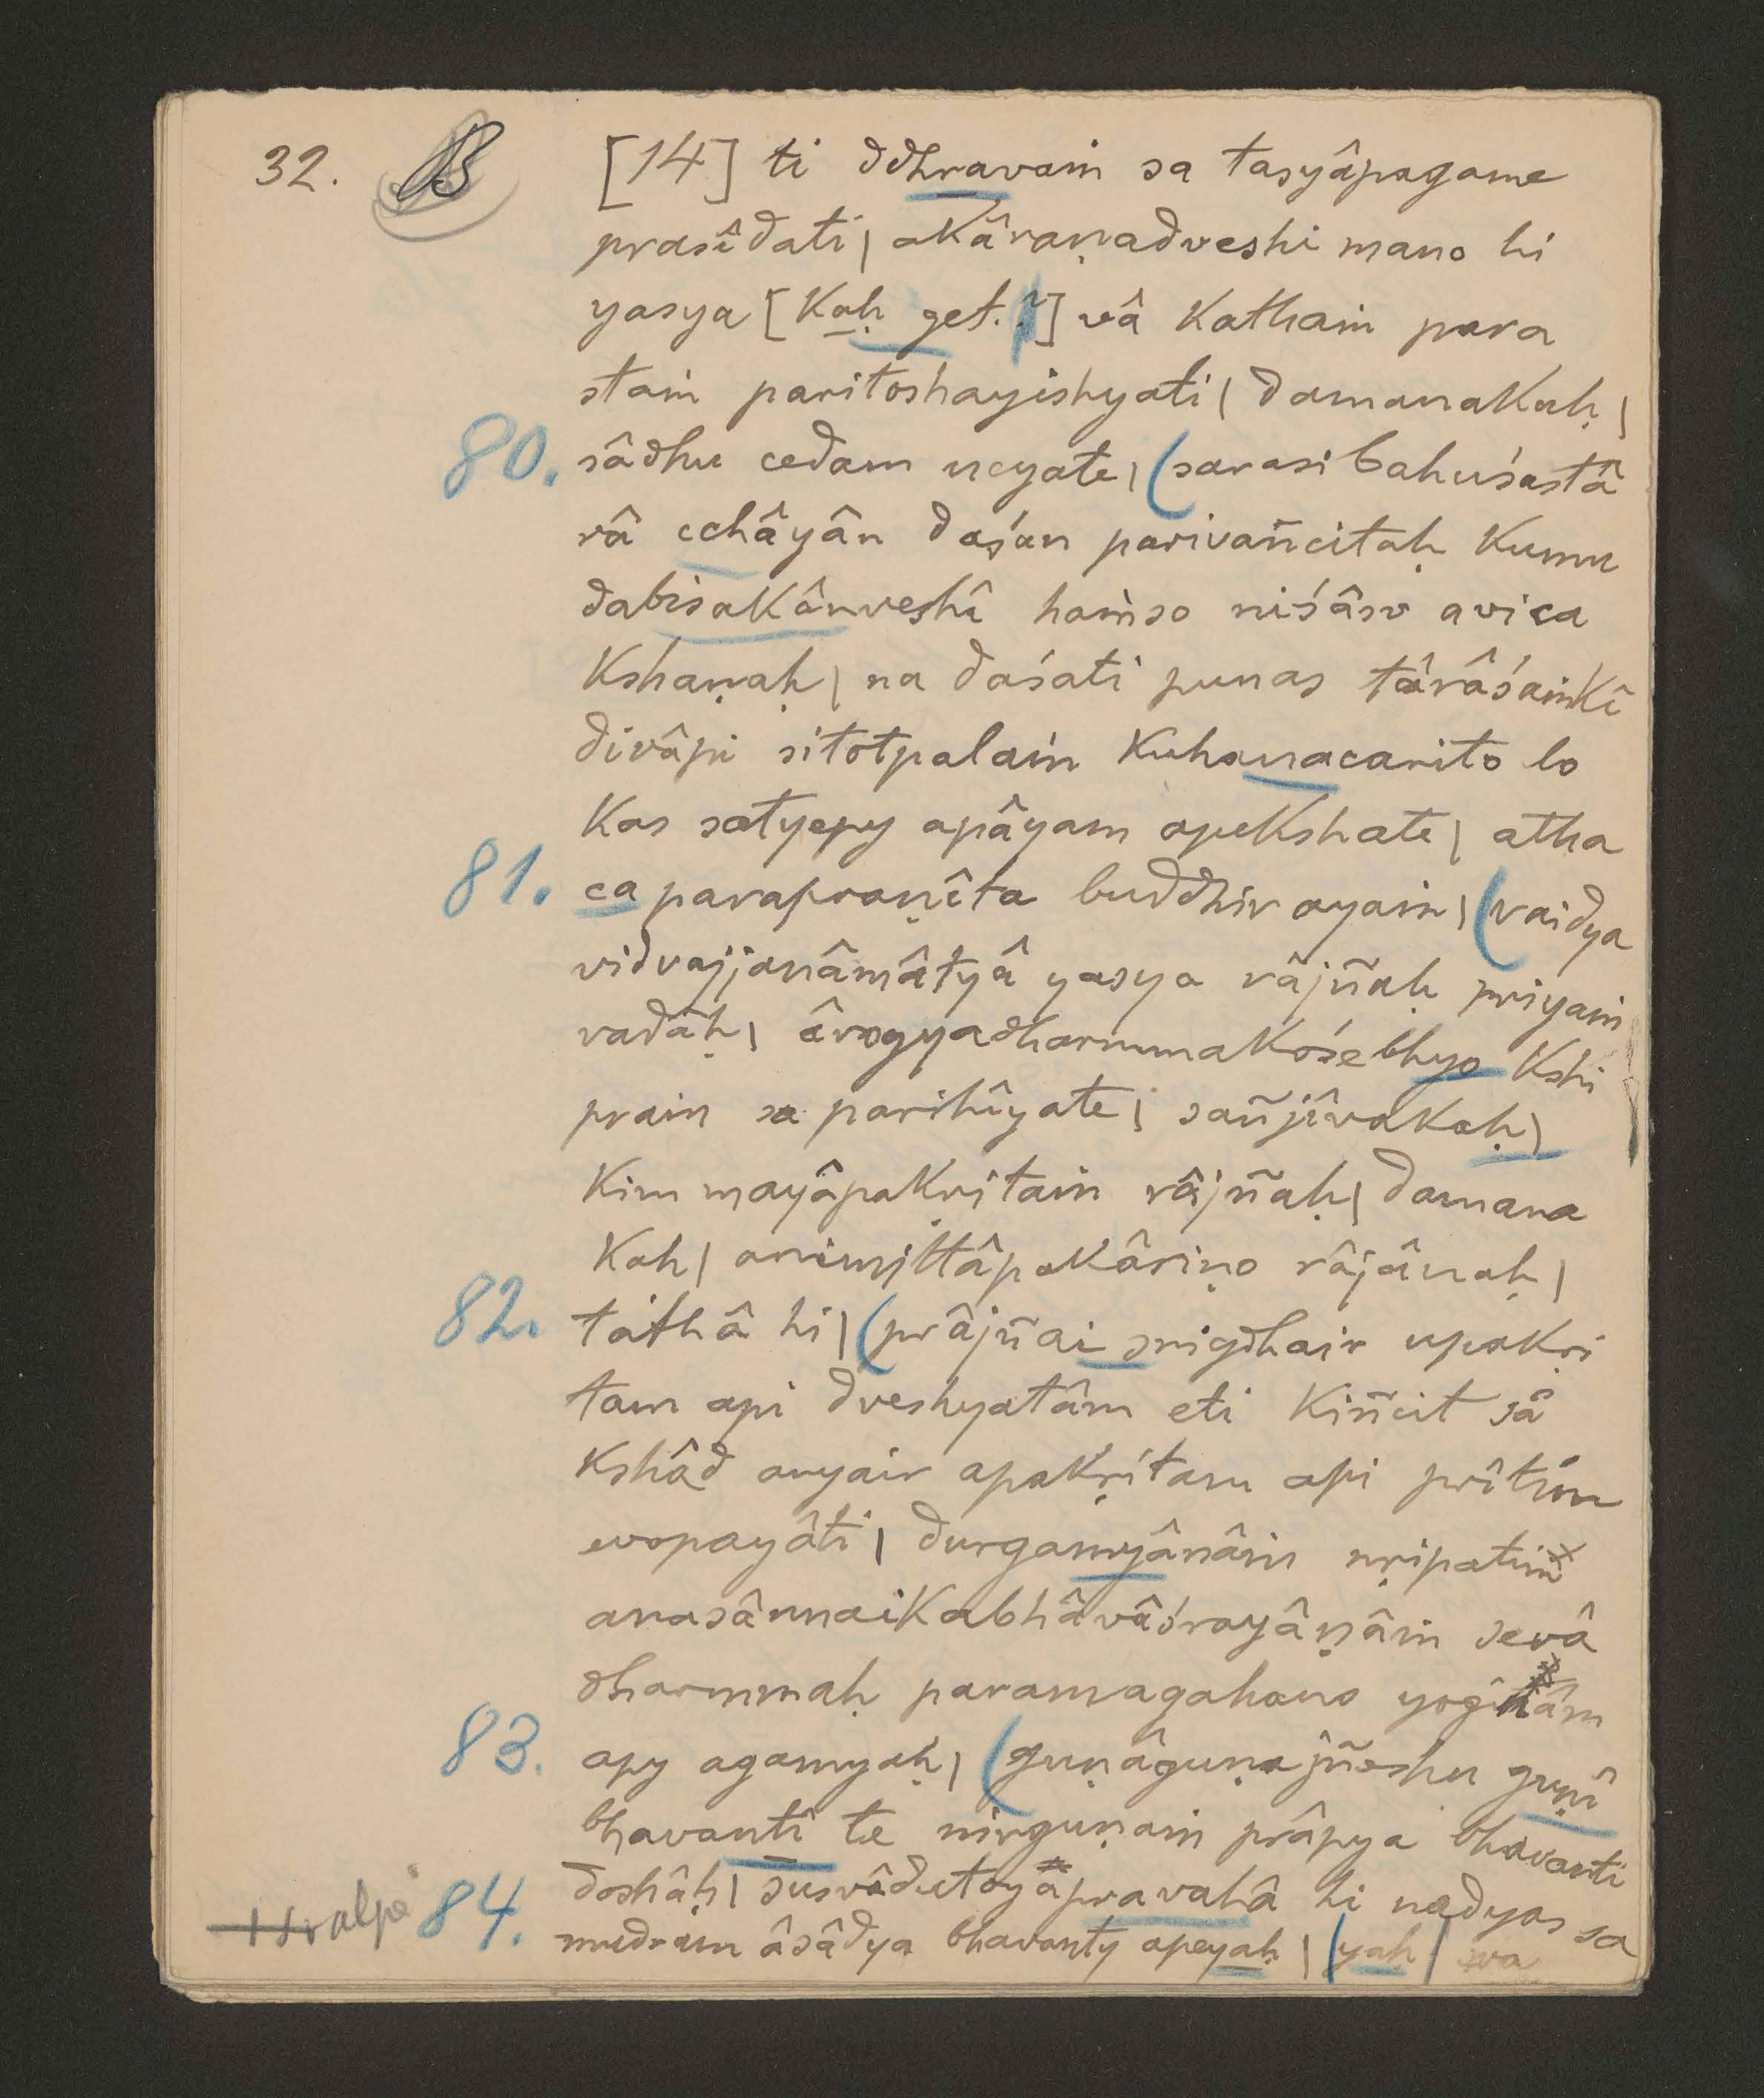 32. B [14] ti ddhravaṁ sa tasyâpagame
prasîdati | akâraṇadveshi mano hi
yasya [kaḥ get.!] vâ kathaṁ para
staṁ paritoshayishyati | damanakaḥ |
80. sâdhu cedam ucyate | (sarasi bahuśastâ
râ cchâyân daśan parivañcitaḥ kumu
dabisakânveshî haṁso niśâsv avica
kshaṇaḥ | na daśati punas târâśaṁkî
divâpi sitotpalaṁ kuhanacarito lo
kas satyepy apâyam apekshate | atha
81. ca parapraṇîta buddhir ayaṁ | (vaidya
vidvajjanâmâtyâ yasya râjñaḥ priyaṁ
vadâḥ | ârogyadharmmakośebhyo kshi
praṁ sa parihîyate | sañjîvakaḥ |
kim mayâpakṛitaṁ râjñaḥ | damana
kaḥ | animittâpakâriṇo râjânaḥ |
82. tathâ hi | (prâjñai snigdhair upakṛi
tam api dveshyatâm eti kiñcit sâ
kshâd anyair apakṛitam api prîtim
evopayâti | durgamyânâṁ nṛipatim
anasânnaikabhâvâśrayâṇâṁ sevâ
dharmmaḥ paramagahano yoginâm
83. apy agamyaḥ | (guṇâguṇajñeshu guṇî
bhavanti te nirguṇaṁ prâpya bhavanti
doshâḥ | susvâdutoyâpravahâ hi nadyas sa
84. mudram âsâdya bhavanty apeyaḥ | (yaḥ | sva
svalpe